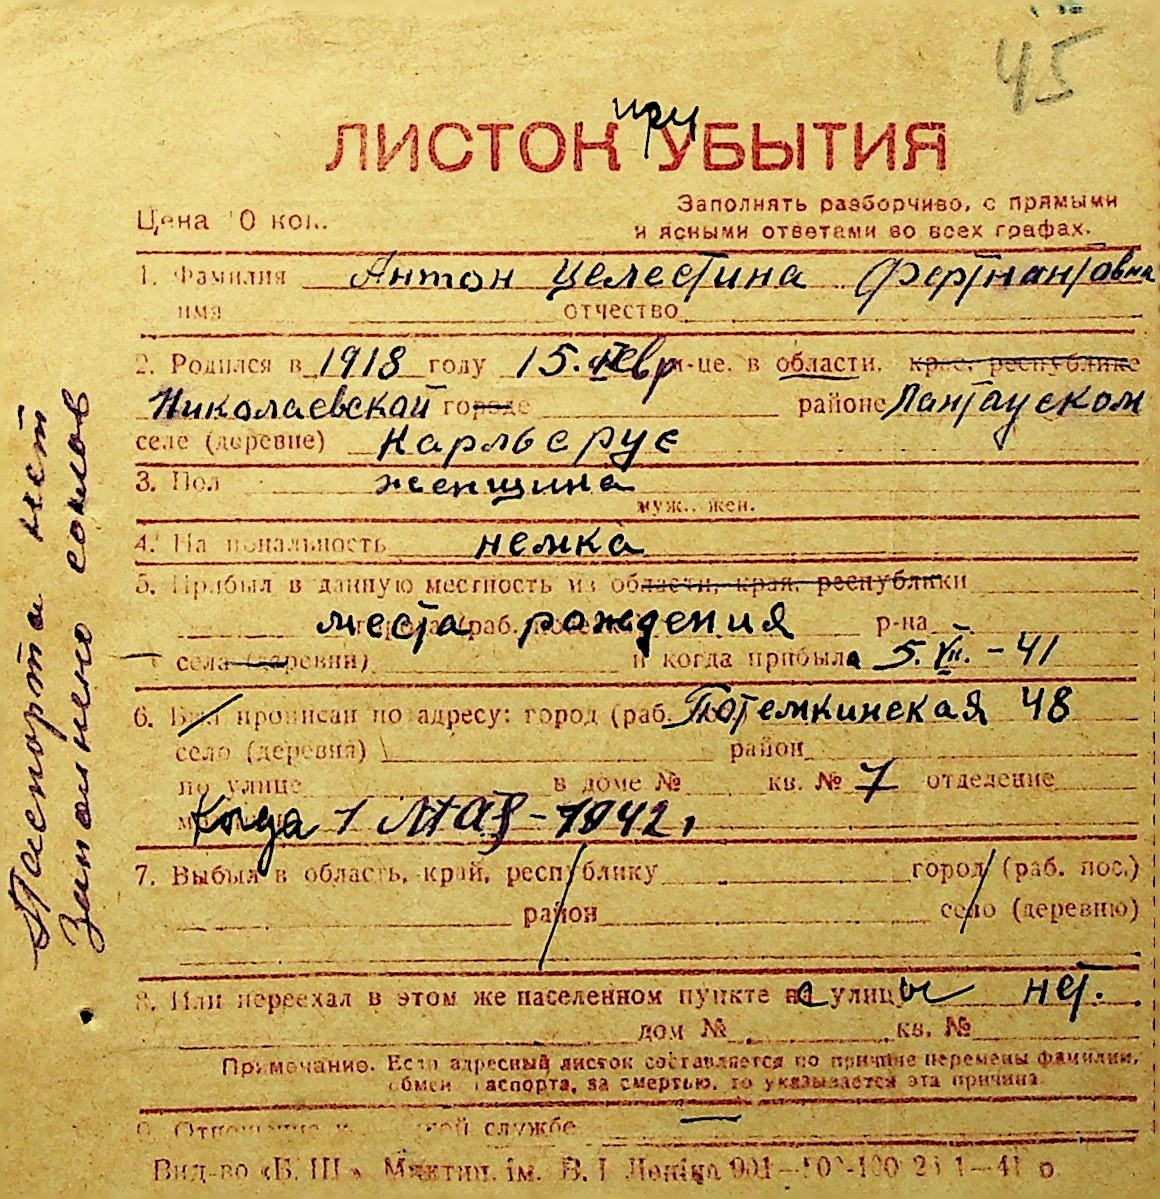 45
ЛИСТОК при УБЫТИЯ
Цена 10 коп.
Заполнять разборчиво, с прямыми
и ясными ответами во всех графах.
1. Фамилия Антон Целестина
имя отчество
2. Родился в 1918 году 15. февр м-це. в области, крае, республике
Николаевской городе районе
селе (деревне) Карльсруе
3. Пол женщина
муж.. жен.
4. Национальность немка
5. Прибыл в данную местность из области, края, республики
места рождения р-на
села (деревни) и когда прибыла 5. VII. - 41
6. Был прописан по адресу: город (раб. пос.) Потемкинская 48
село (деревня) район
по улице в доме № кв. № 7 отделение
Когда 1 мая - 1942,
7. Выбыл в область, край, республику город (раб. пос.)
район село (деревню)
8. Или переехал в этом же населенном пункте с улицы нет.
дом № кв. №
Примечание. Если адресный листок составляется по причине перемены фамилии,
обмен паспорта, за смертью, то указывается эта причина
9. Отношение к службе —
Вид-во «Б. Ш.» Миктип. ім. В. І Леніна
Паспорта нет
Заполнено со слов